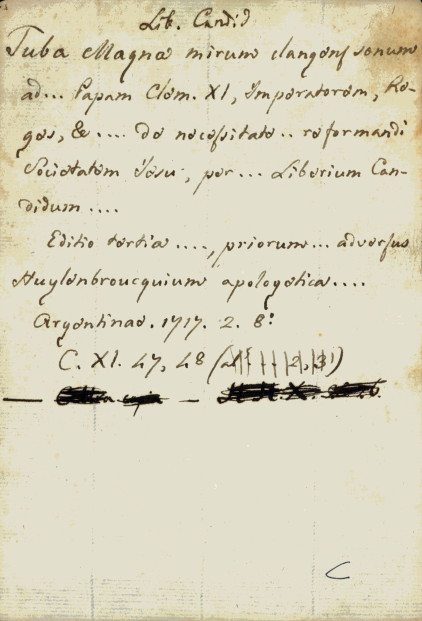 Lib. Candid
Tuba Magna mirum clangens sonum
ad... Papam Clem. XI, Imperatorem, Re-
ges, &.... de necessitate.. reformandi
Societatem Jesu, per... Liberium Can-
didum....
Editio tertia ...., priorum... adversus
Huylenbroucquium apologetica....
Argentinae. 1717. 2. 8:
C. XI. 47, 48
C